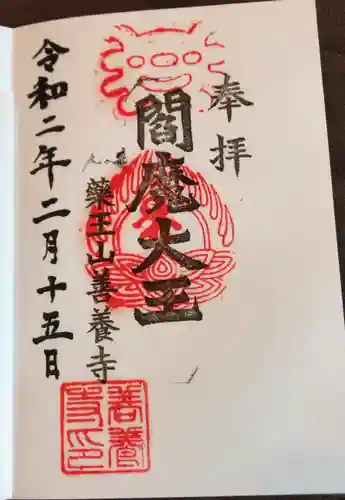 奉拝
閻魔大王
薬王山善養寺
令和二年二月十五日
善養寺印